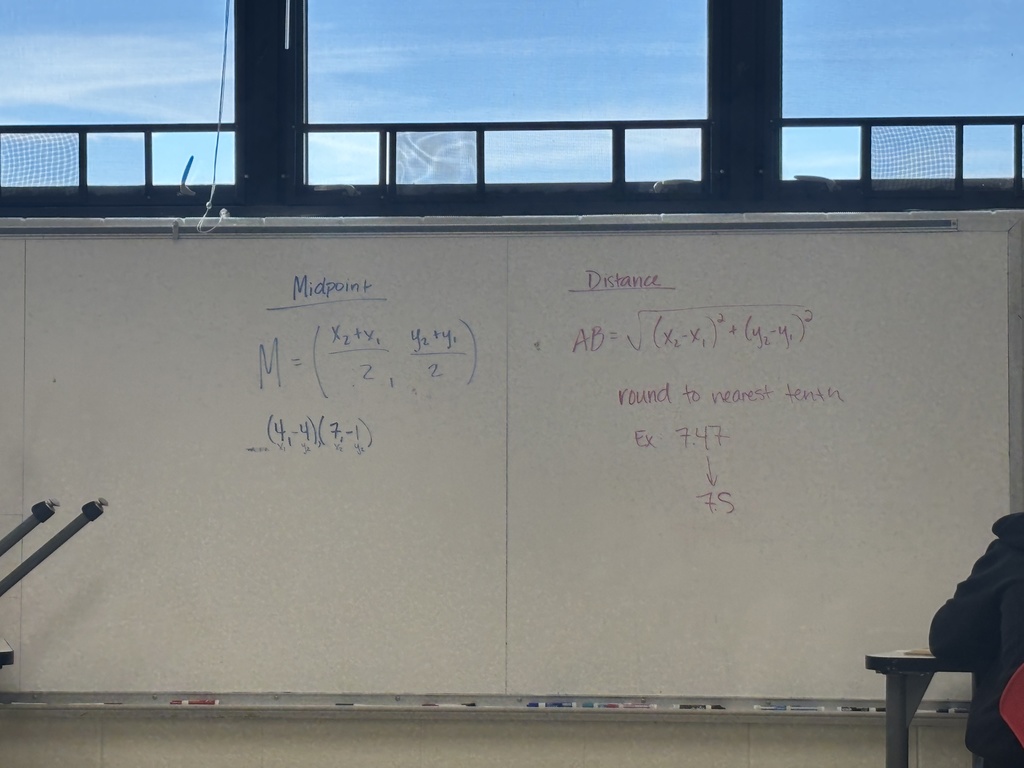 Midpoint
M = ( x₂+x₁ / 2 , y₂+y₁ / 2 )
(4,-4)(7,-1)
x₁ y₂ x₂ y₂
Distance
AB = √(x₂-x₁)² + (y₂-y₁)²
round to nearest tenth
Ex 7.47
↓
7.5